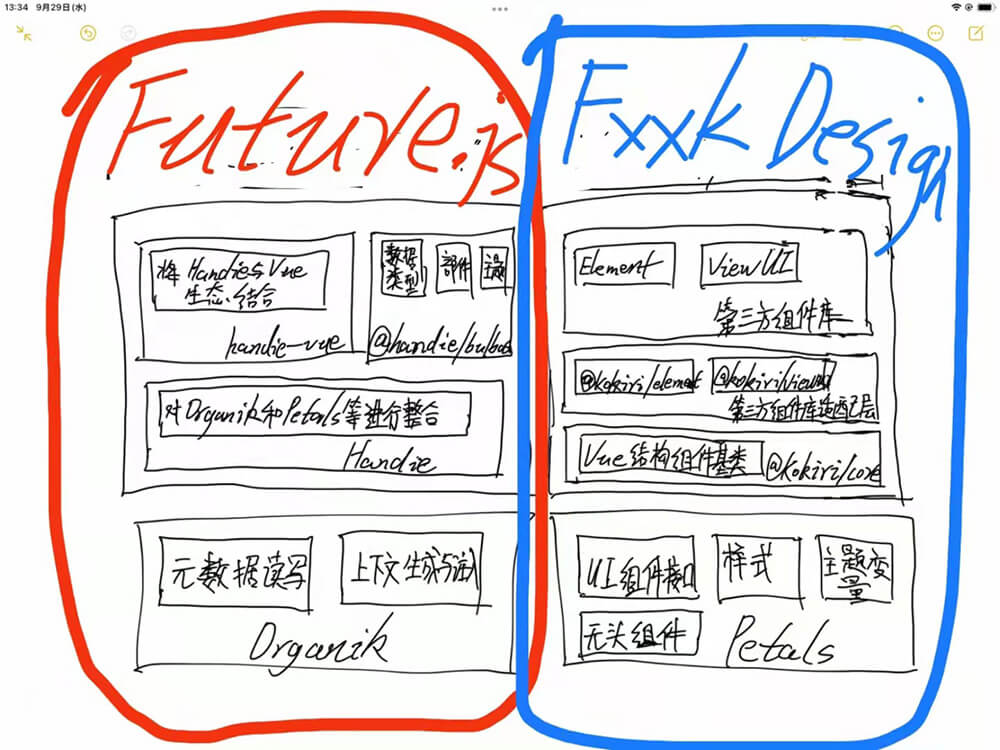 13:34 9月29日(水)
Future.js
Fxxk Design
将Handie与Vue
生态结合
handie-vue
数据
类型
部件
主题
@handie/bulbasaur
对Organik和Petals等进行整合
Handie
元数据读写
上下文生成与注入
Organik
Element
View UI
第三方组件库
@kokiri/element
@kokiri/viewui
第三方组件库适配层
Vue结构组件基类
@kokiri/core
UI组件接口
样式
主题变
量
无头组件
Petals